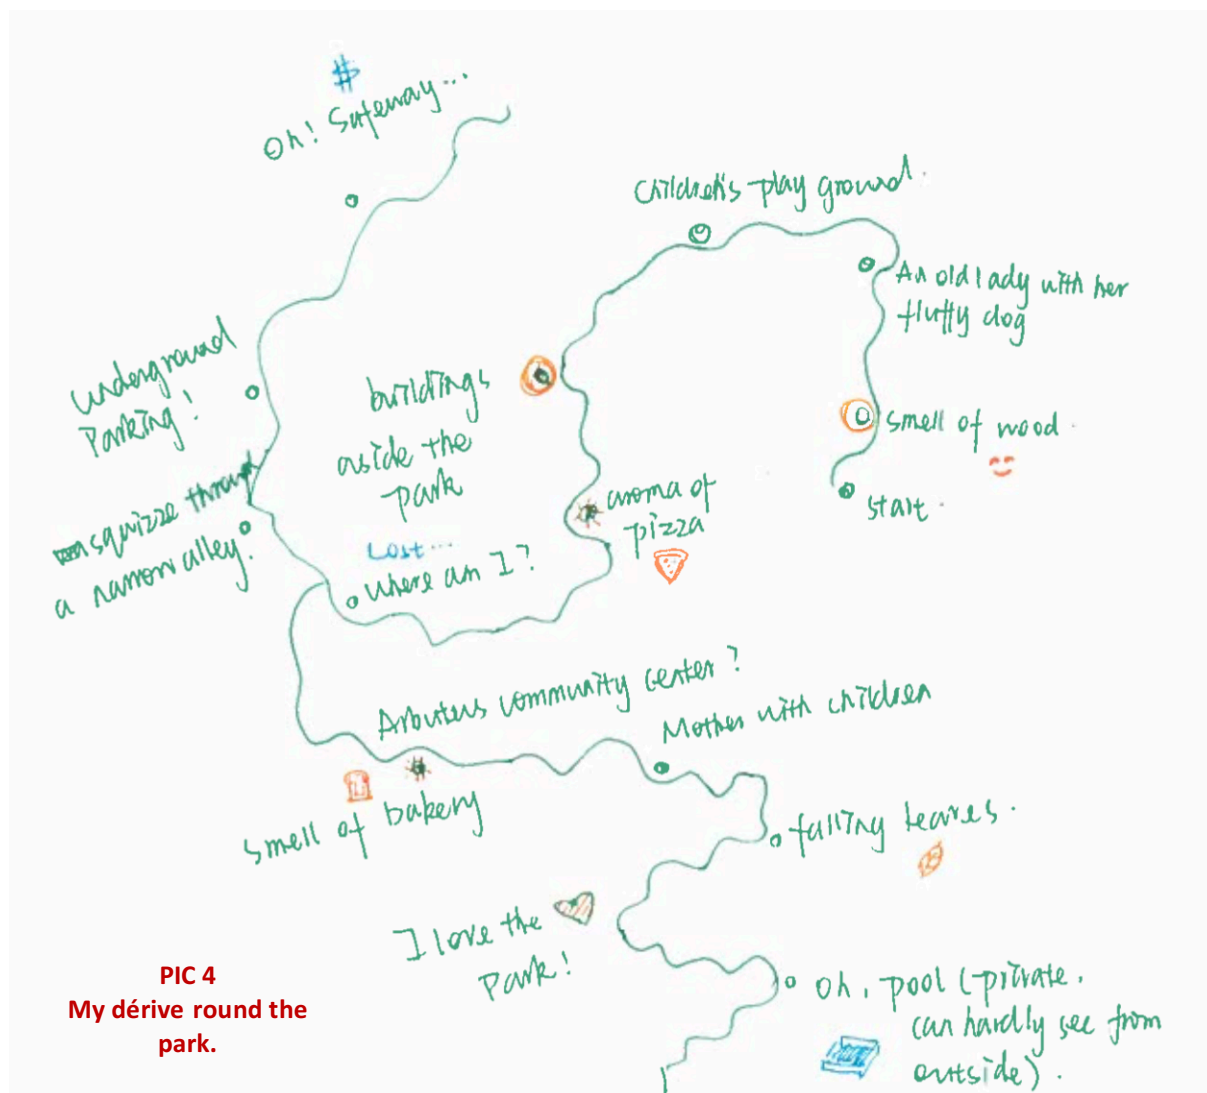 #
Oh! Safeway...
Children's play ground.
An old lady with her
fluffy dog
underground
Parking!
buildings
aside the
park
smell of wood.
start.
aroma of
pizza
squizze through
a narrow alley.
Lost...
where am I?
Arbuteus community center?
Mother with children
smell of bakery
falling leaves.
I love the
park!
oh, pool (private,
can hardly see from
outside).
PIC 4
My dérive round the
park.